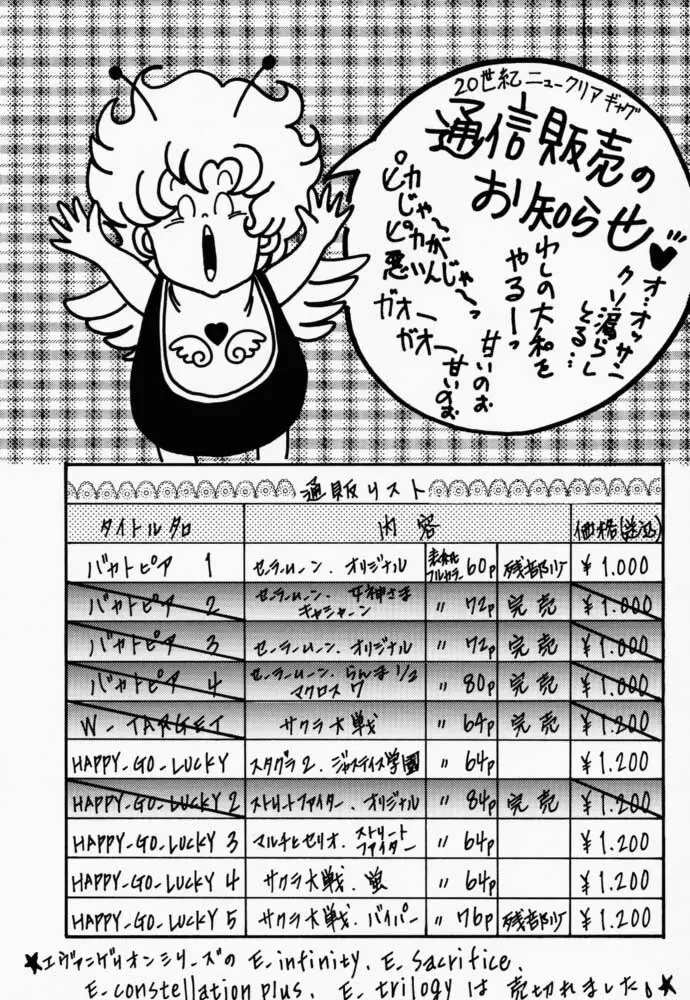 20世紀ニュークリアギャグ
通信販売の
お知らせ♥
ピカじゃ〜
ピカが
悪いんじゃ〜っ
ガオー
ガオー
わしの大和を
やるーっ
甘いのお
甘いのお
オ…オッサン
クソ漏らし
とる…
通販リスト
タイトル名 内容 価格(送込)
バカトピア 1 セーラームーン.オリジナル 表紙フルカラー 60p 残部少 ¥1.000
バカトピア 2 セーラームーン.女神さま キャシャーン 〃 72p 完売 ¥1.000
バカトピア 3 セーラームーン.オリジナル 〃 72p 完売 ¥1.000
バカトピア 4 セーラームーン.らんま1/2 マクロス7 〃 80p 完売 ¥1.000
W-TARGET サクラ大戦 〃 64p 完売 ¥1.200
HAPPY-GO-LUCKY スタグラ2.ジャスティス学園 〃 64p ¥1.200
HAPPY-GO-LUCKY 2 ストリートファイター.オリジナル 〃 84p 完売 ¥1.200
HAPPY-GO-LUCKY 3 マルチとセリオ.ストリートファイター 〃 64p ¥1.200
HAPPY-GO-LUCKY 4 サクラ大戦.蛍 〃 64p ¥1.200
HAPPY-GO-LUCKY 5 サクラ大戦.バイパー 〃 76p 残部少 ¥1.200
★エヴァンゲリオンシリーズの E-infinity. E-sacrifice.
E-constellation plus. E-trilogy は 売切れました。★